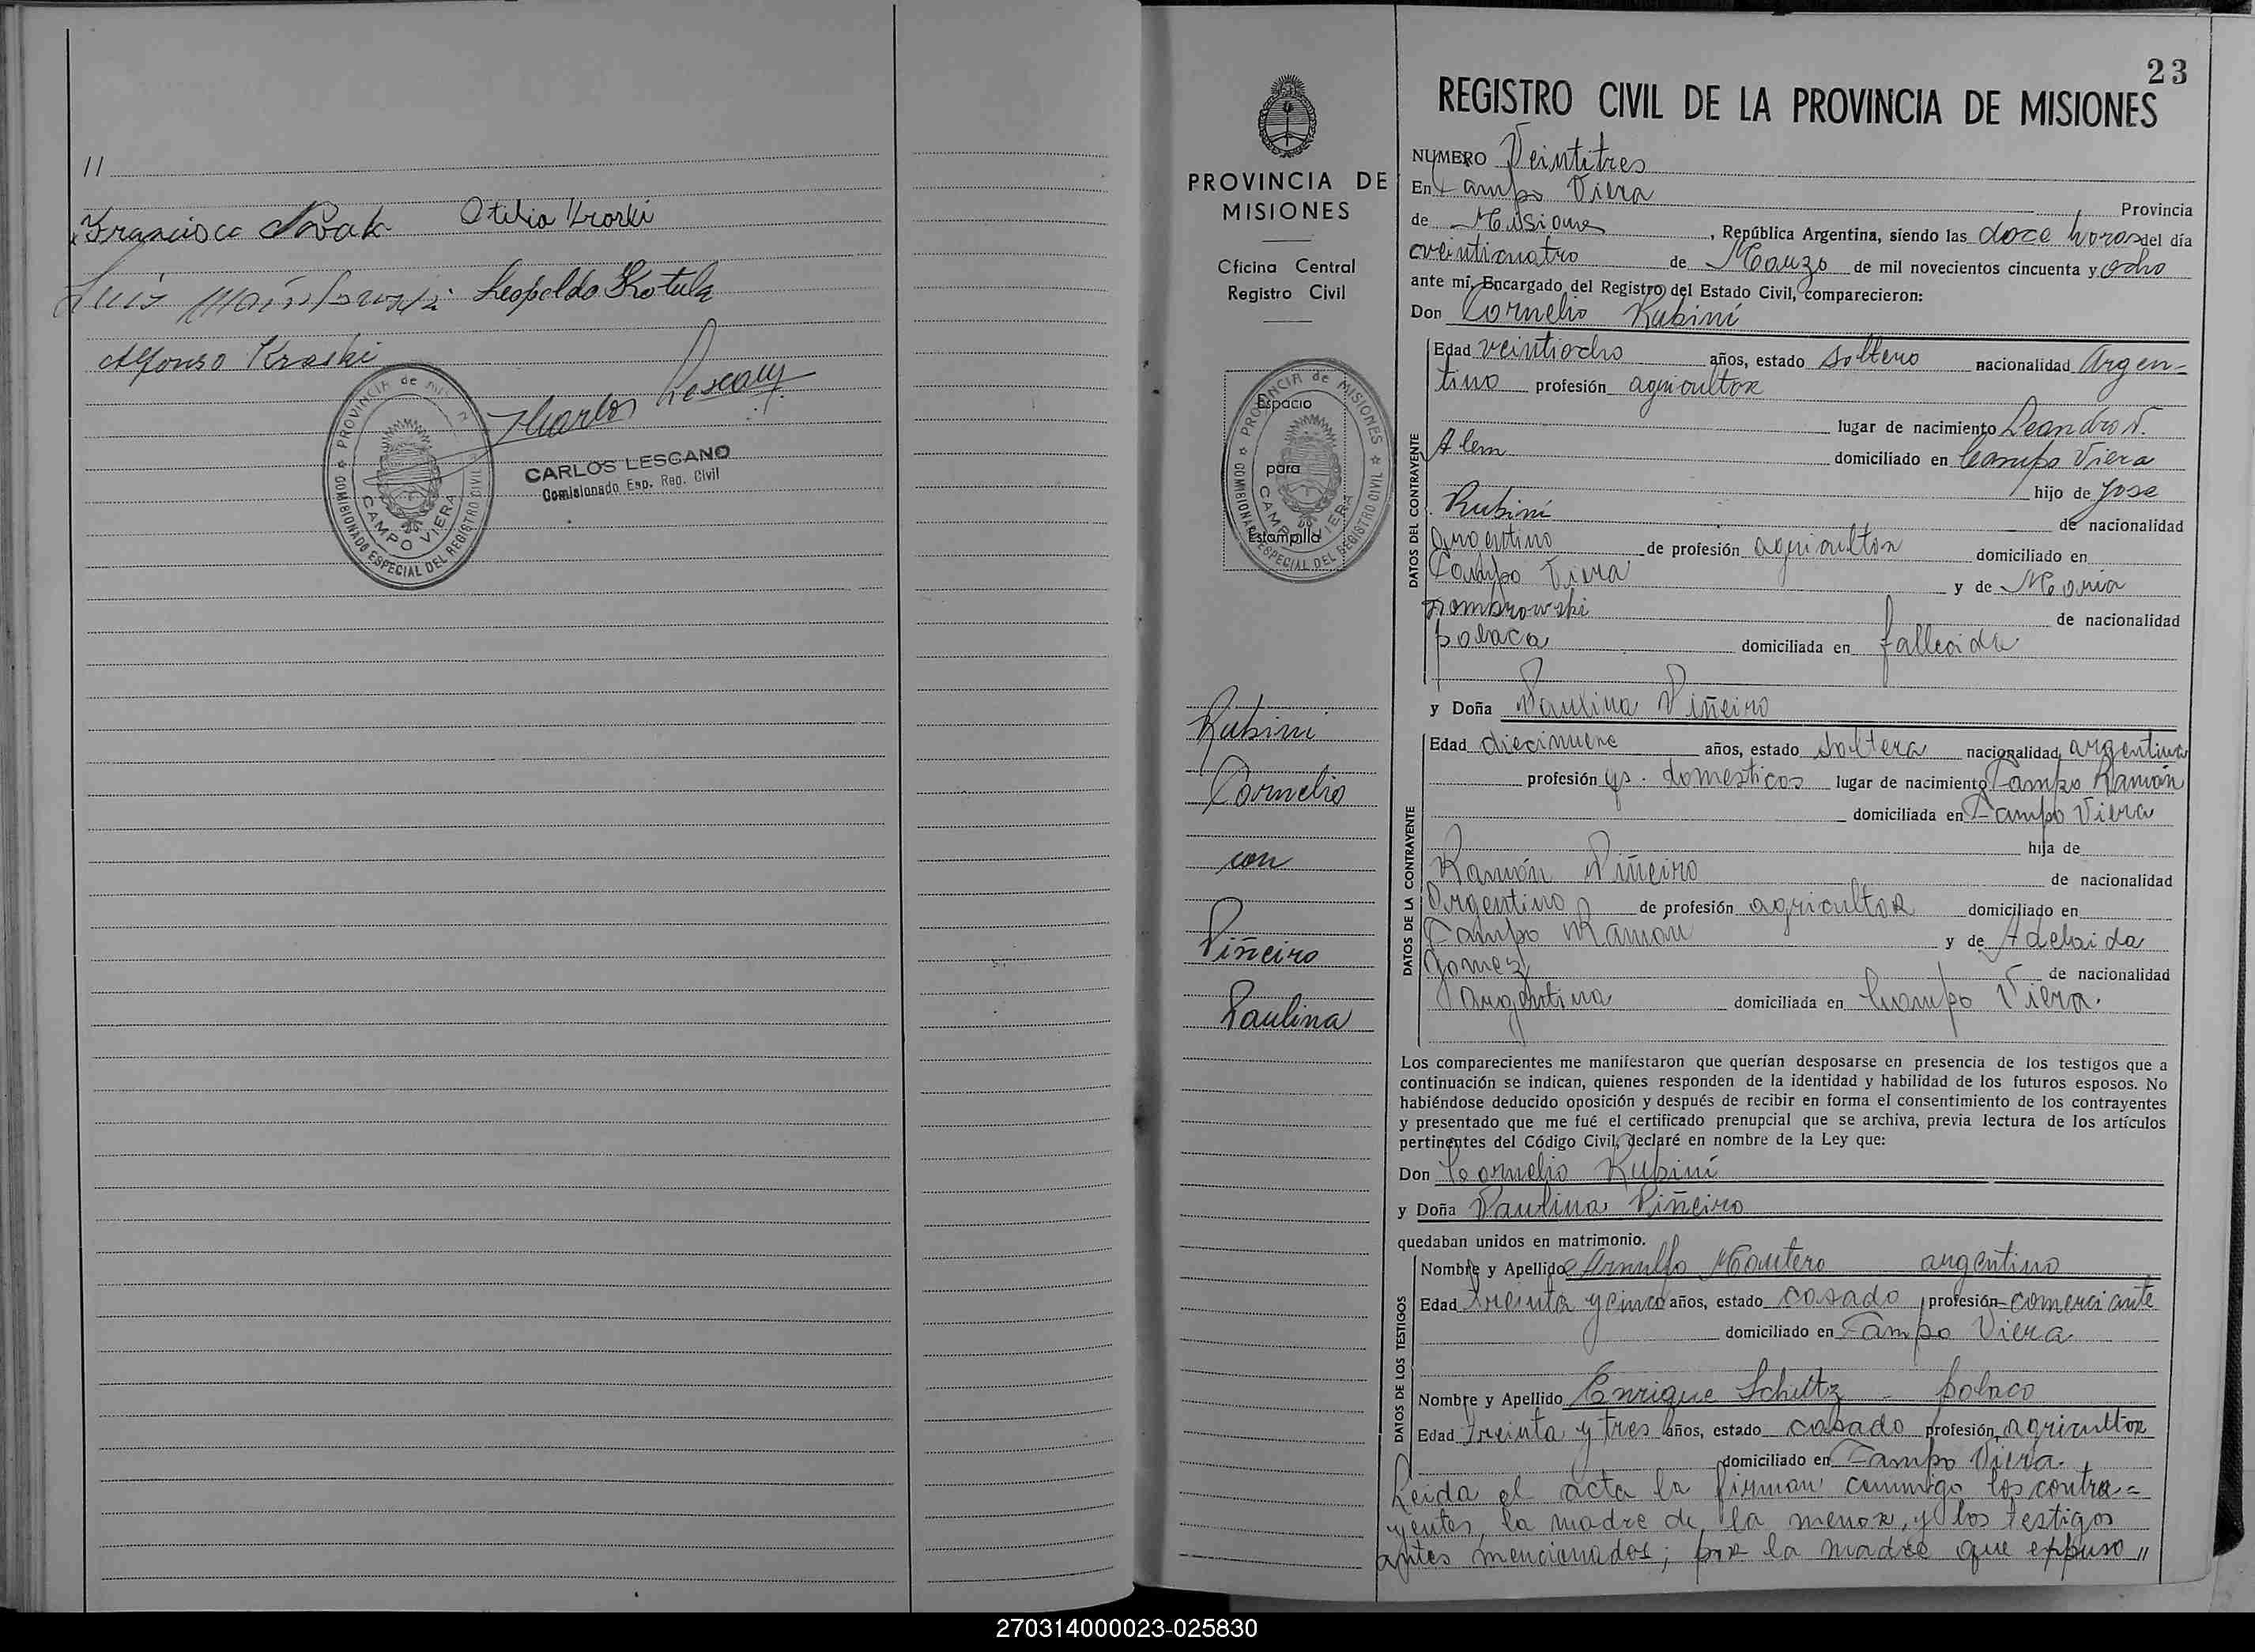 11
Francisco Novak Otilia Kroski
Luis Leopoldo Kotula
Alfonso Kraski
Carlos Lescano
PROVINCIA de MISIONES
COMISIONADO ESPECIAL DEL REGISTRO CIVIL
CAMPO VIERA
CARLOS LESCANO
Comisionado Esp. Reg. Civil
PROVINCIA DE
MISIONES
Oficina Central
Registro Civil
Espacio
para
Estampilla
PROVINCIA de MISIONES
COMISIONADO ESPECIAL DEL REGISTRO CIVIL
CAMPO VIERA
Rubini
Cornelio
con
Piñeiro
Paulina
23
REGISTRO CIVIL DE LA PROVINCIA DE MISIONES
NUMERO Veintitres
En Campo Viera Provincia
de Misiones, República Argentina, siendo las doce horas del día
veinticuatro de Marzo de mil novecientos cincuenta y ocho
ante mí, Encargado del Registro del Estado Civil, comparecieron:
Don Cornelio Rubini
DATOS DEL CONTRAYENTE
Edad veintiocho años, estado soltero nacionalidad Argen=
tino profesión agricultor
lugar de nacimiento Leandro N.
Alem domiciliado en Campo Viera
hijo de Jose
Rubini de nacionalidad
argentino de profesión agricultor domiciliado en
Campo Viera y de Maria
Dombrowski de nacionalidad
polaca domiciliada en fallecida
y Doña Paulina Piñeiro
DATOS DE LA CONTRAYENTE
Edad diecinueve años, estado soltera nacionalidad argentina
profesión qs. domesticos lugar de nacimiento Campo Ramón
domiciliada en Campo Viera
hija de
Ramón Piñeiro de nacionalidad
Argentino de profesión agricultor domiciliado en
Campo Ramon y de Adelaida
Gomez de nacionalidad
argentina domiciliada en Campo Viera.
Los comparecientes me manifestaron que querían desposarse en presencia de los testigos que a
continuación se indican, quienes responden de la identidad y habilidad de los futuros esposos. No
habiéndose deducido oposición y después de recibir en forma el consentimiento de los contrayentes
y presentado que me fué el certificado prenupcial que se archiva, previa lectura de los artículos
pertinentes del Código Civil, declaré en nombre de la Ley que:
Don Cornelio Rubini
y Doña Paulina Piñeiro
quedaban unidos en matrimonio.
DATOS DE LOS TESTIGOS
Nombre y Apellido Arnulfo Montero argentino
Edad treinta y cinco años, estado casado profesión comerciante
domiciliado en Campo Viera.
Nombre y Apellido Enrique Schultz - polaco
Edad Treinta y tres años, estado casado profesión agricultor
domiciliado en Campo Viera.
Leida el acta la firman conmigo los contra=
yentes, la madre de la menor, y los testigos
antes mencionados; por la madre que expuso "
270314000023-025830